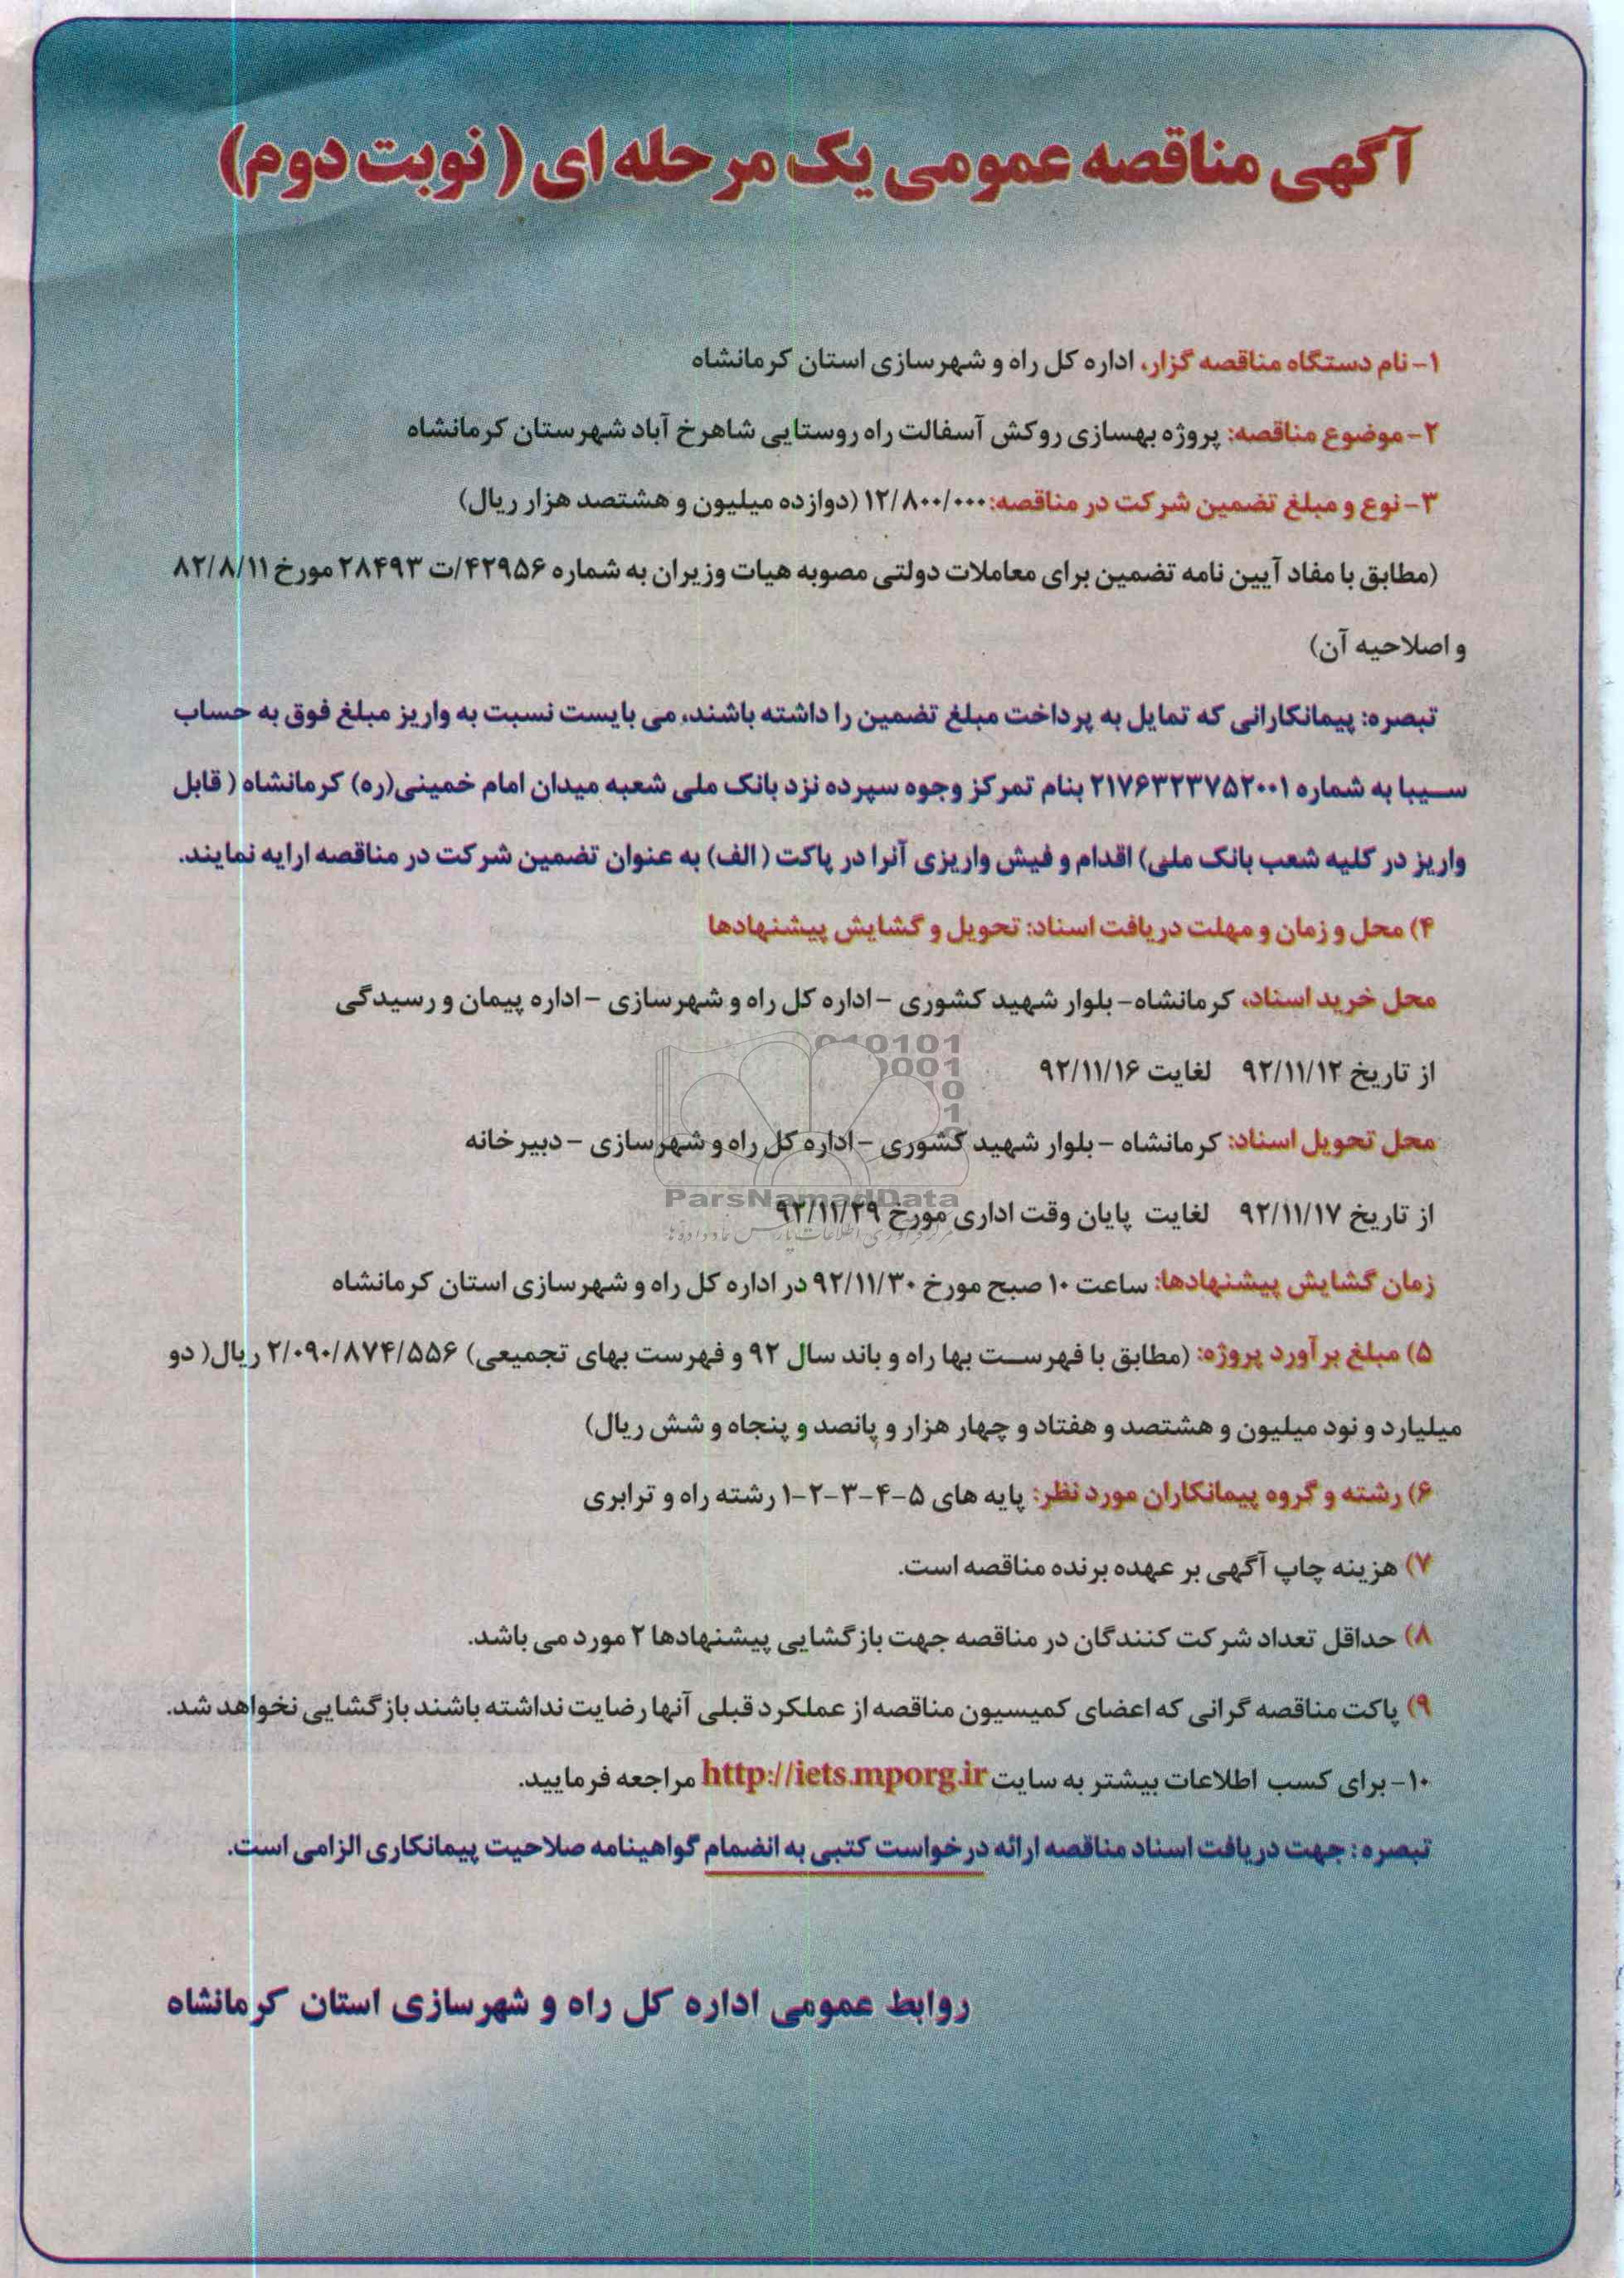 آگهی مناقصه عمومی یک مرحله ای ( نوبت دوم)
۱- نام دستگاه مناقصه گزار، اداره کل راه و شهرسازی استان کرمانشاه
۲- موضوع مناقصه: پروژه بهسازی روکش آسفالت راه روستایی شاهرخ آباد شهرستان کرمانشاه
۳- نوع و مبلغ تضمین شرکت در مناقصه: ۱۲/۸۰۰/۰۰۰ (دوازده میلیون و هشتصد هزار ریال)
(مطابق با مفاد آیین نامه تضمین برای معاملات دولتی مصوبه هیات وزیران به شماره ۴۲۹۵۶/ت ۲۸۴۹۳ مورخ ۸۲/۸/۱۱
و اصلاحیه آن)
تبصره: پیمانکارانی که تمایل به پرداخت مبلغ تضمین را داشته باشند، می بایست نسبت به واریز مبلغ فوق به حساب
سیبا به شماره ۲۱۷۶۳۲۳۷۵۲۰۰۱ بنام تمرکز وجوه سپرده نزد بانک ملی شعبه میدان امام خمینی(ره) کرمانشاه ( قابل
واریز در کلیه شعب بانک ملی) اقدام و فیش واریزی آنرا در پاکت ( الف) به عنوان تضمین شرکت در مناقصه ارایه نمایند.
۴) محل و زمان و مهلت دریافت اسناد: تحویل و گشایش پیشنهادها
محل خرید اسناد، کرمانشاه- بلوار شهید کشوری -اداره کل راه و شهرسازی -اداره پیمان و رسیدگی
010101
0001
10
از تاریخ ۹۲/۱۱/۱۲ لغایت ۹۲/۱۱/۱۶
1
محل تحویل اسناد: کرمانشاه - بلوار شهید کشوری -اداره کل راه و شهرسازی -دبیرخانه
ParsNamadData
از تاریخ ۹۲/۱۱/۱۷ لغایت پایان وقت اداری مورخ ۹۲/۱۱/۲۹
زمان گشایش پیشنهادها: ساعت ۱۰ صبح مورخ ۹۲/۱۱/۳۰ در اداره کل راه و شهرسازی استان کرمانشاه
۵) مبلغ برآورد پروژه: (مطابق با فهرست بها راه و باند سال ۹۲ و فهرست بهای تجمیعی) ۲/۰۹۰/۸۷۴/۵۵۶ ریال( دو
میلیارد و نود میلیون و هشتصد و هفتاد و چهار هزار و پانصد و پنجاه و شش ریال)
۶) رشته و گروه پیمانکاران مورد نظر: پایه های ۵-۴-۳-۲-۱ رشته راه و ترابری
۷) هزینه چاپ آگهی بر عهده برنده مناقصه است.
۸) حداقل تعداد شرکت کنندگان در مناقصه جهت بازگشایی پیشنهادها ۲ مورد می باشد.
۹) پاکت مناقصه گرانی که اعضای کمیسیون مناقصه از عملکرد قبلی آنها رضایت نداشته باشند بازگشایی نخواهد شد.
۱۰- برای کسب اطلاعات بیشتر به سایت http://iets.mporg.ir مراجعه فرمایید.
تبصره : جهت دریافت اسناد مناقصه ارائه درخواست کتبی به انضمام گواهینامه صلاحیت پیمانکاری الزامی است.
روابط عمومی اداره کل راه و شهرسازی استان کرمانشاه